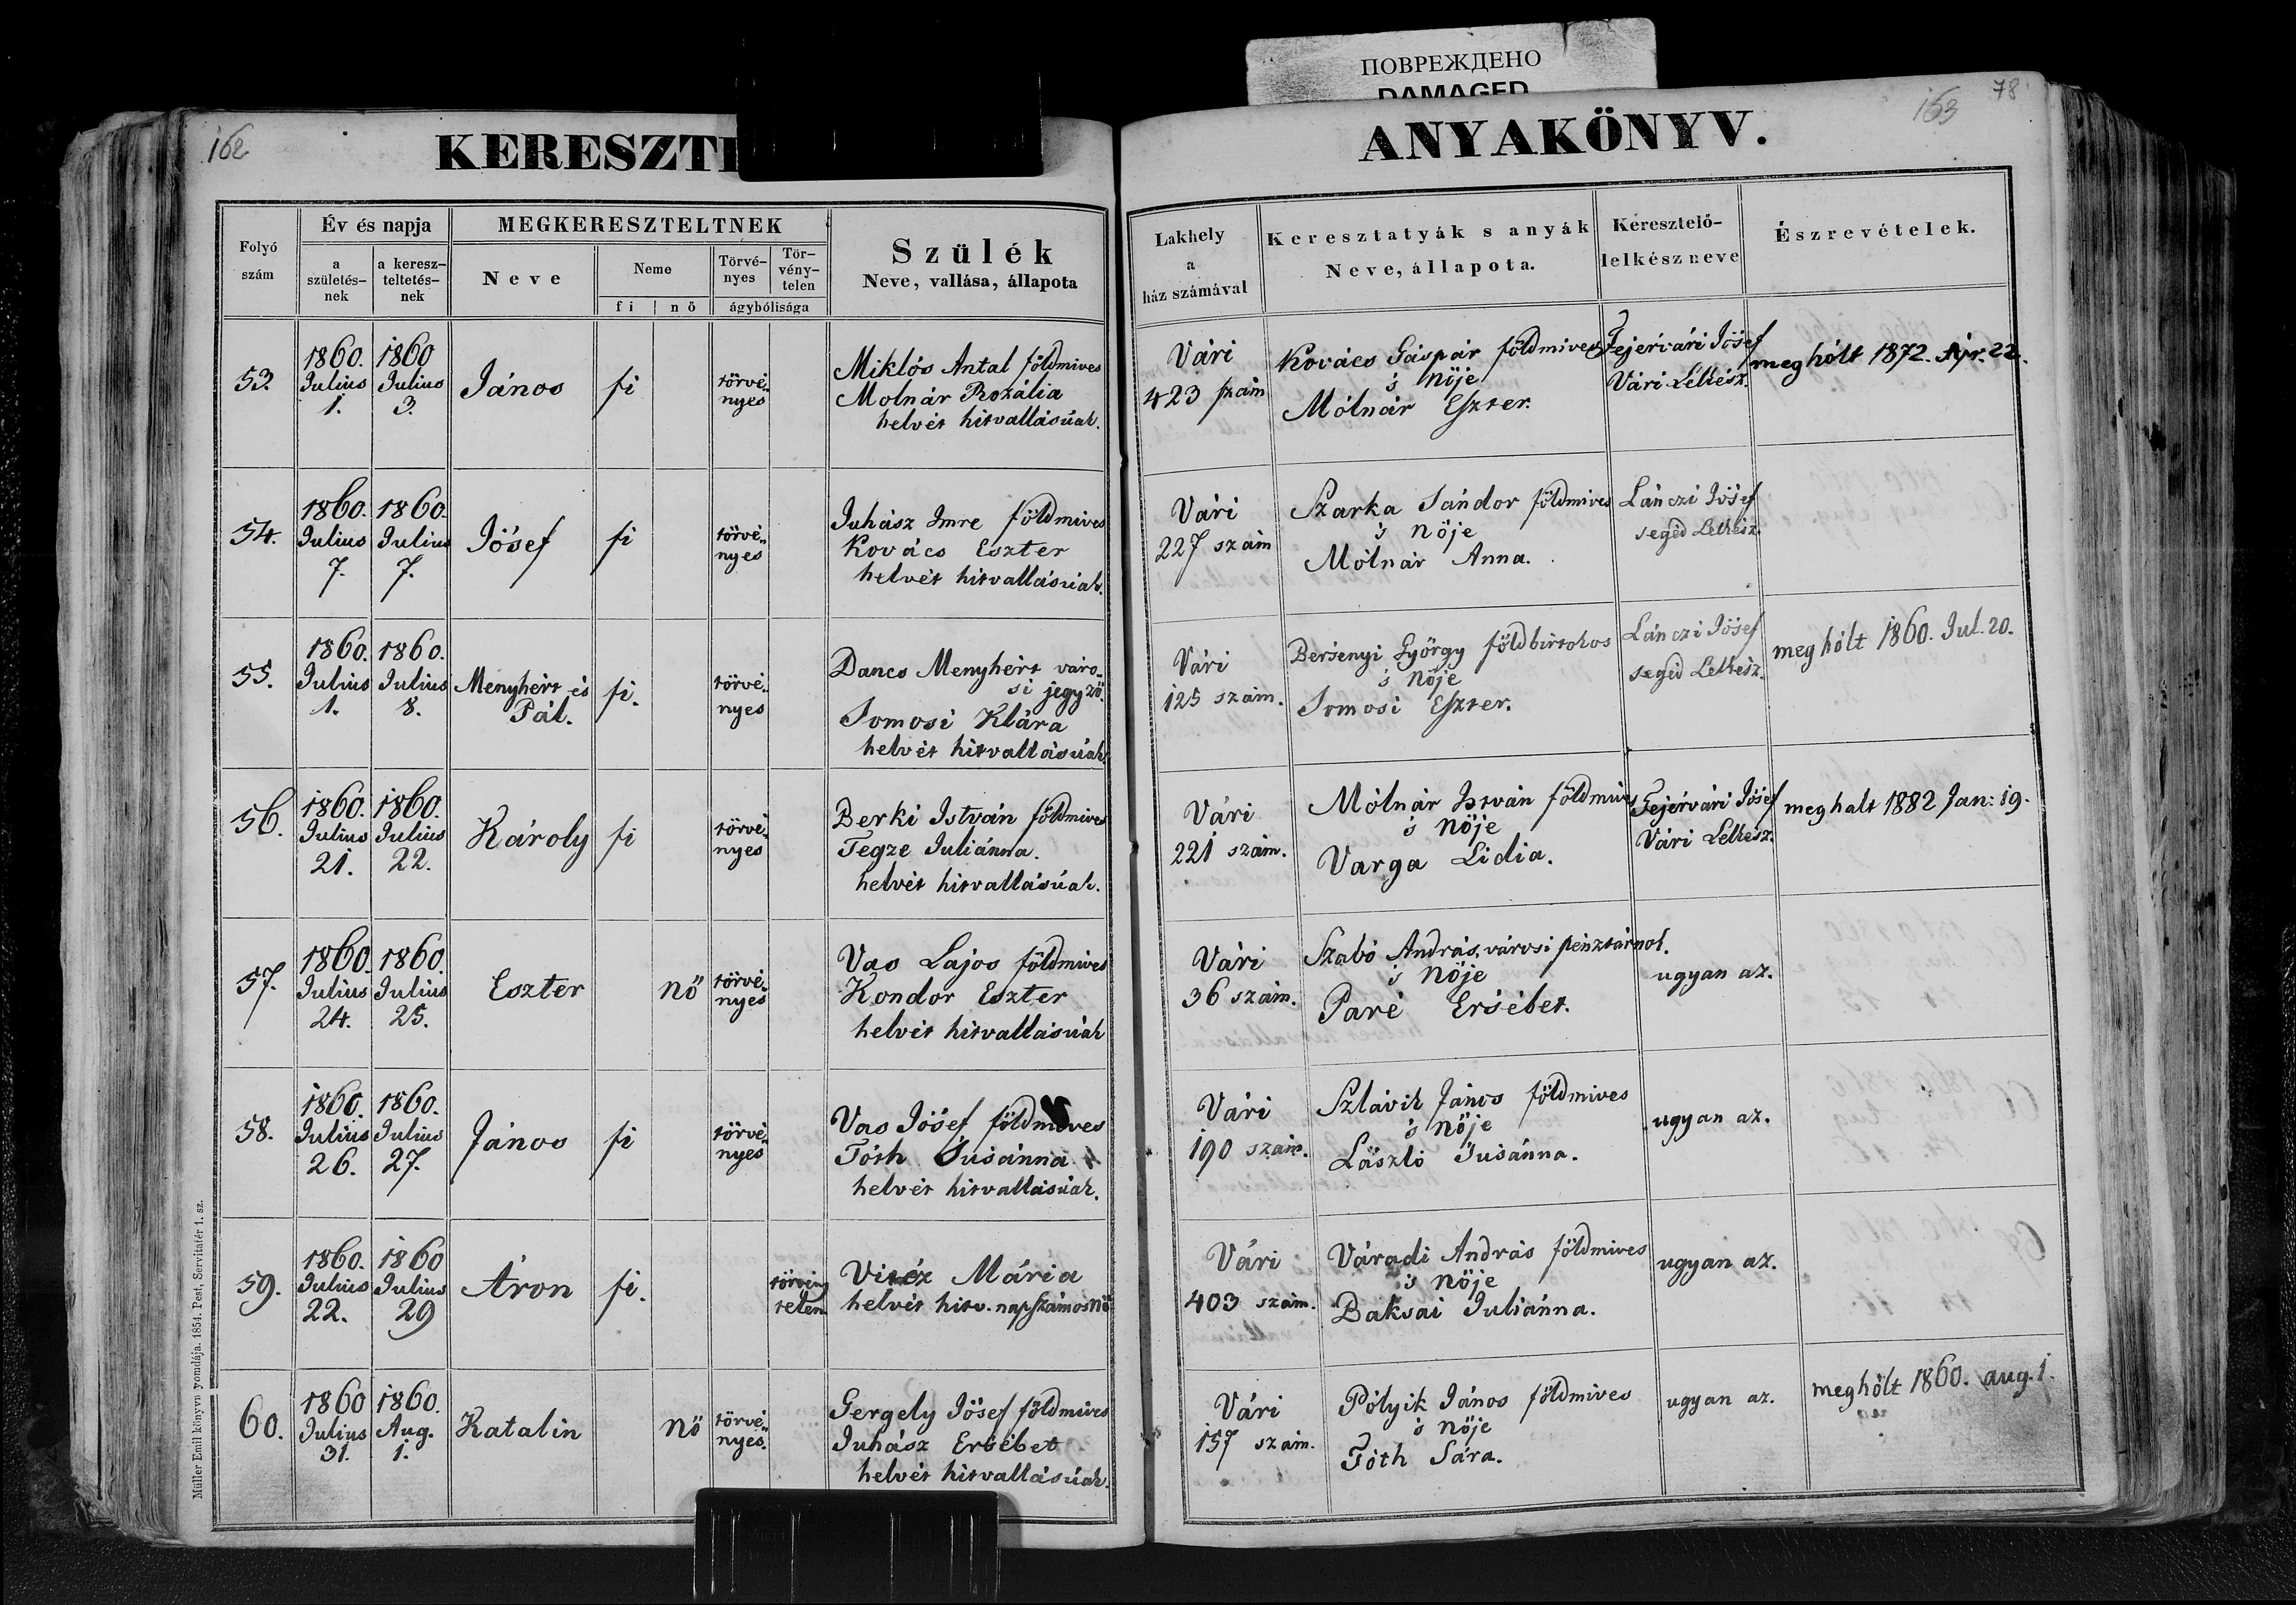 ПОВРЕЖДЕНО
DAMAGED
162
KERESZTE
Folyó
szám
Év és napja
a
születés-
nek
a keresz-
teltetés-
nek
MEGKERESZTELTNEK
Neve
Neme
fi
nő
Törvé-
nyes
Tör-
vény-
telen
ágybólisága
Szülék
Neve, vallása, állapota
53.
1860.
Július
1.
1860
Július
3.
János
fi
törvé-
nyes
Miklós Antal földmives
Molnár Rozália
helvét hitvallásúak.
54.
1860.
Július
7.
1860.
Július
7.
Jósef
fi
törvé-
nyes
Juhász Imre földmives
Kovács Eszter
helvét hitvallásúak.
55.
1860.
Július
1.
1860.
Július
8.
Menyhért és
Pál.
fi.
törvé-
nyes
Dancs Menyhért váro-
si jegyző.
Somosi Klára
helvét hitvallásúak
56.
1860.
Július
21.
1860.
Július
22.
Károly
fi
törvé-
nyes
Berki István földmives
Tegze Juliánna.
helvét hitvallásúak.
57.
1860.
Július
24.
1860.
Július
25.
Eszter
nő
törvé-
nyes
Vas Lajos földmives
Kondor Eszter
helvét hitvallásúak
58.
1860.
Július
26.
1860.
Július
27.
János
fi
törvé-
nyes
Vas Jósef földmives
Tóth Susánna
helvét hitvallásúak.
59.
1860.
Július
22.
1860
Július
29
Áron
fi.
törvény
telen
Vitéz Mária
helvét hitv. napszámosnő
60.
1860
Július
31.
1860.
Aug.
1.
Katalin
nő
törvé-
nyes.
Gergely Jósef földmives
Juhász Ersébet
helvét hitvallásúak.
Müller Emil könyvnyomdája. 1854. Pest, Servitatér 1. sz.
ANYAKÖNYV.
163
78
Lakhely
a
ház számával
Keresztatyák s anyák
Neve, állapota.
Keresztelő-
lelkész neve
Észrevételek.
Vári
423 szám
Kovács Gáspár földmives
's nője
Mólnár Eszter.
Fejérvári Jósef
Vári Lelkész.
meghólt 1872. Apr. 22.
Vári
227 szám
Szarka Sándor földmives
's nője
Mólnár Anna.
Lánczi Jósef
segéd Lelkész.
Vári
125 szám.
Bersenyi György földbirtokos
's nője
Somosi Eszter.
Lánczi Jósef
segéd Lelkész.
meghólt 1860. Jul. 20.
Vári
221 szám.
Mólnár István földmives
's nője
Varga Lidia.
Fejérvári Jósef
Vári Lelkész.
meghalt 1882 Jan: 19.
Vári
36 szám.
Szabó András, városi pénztárnok.
's nője
Paré Ersébet.
ugyan az.
Vári
190 szám.
Szlávik János földmives
's nője
László Susánna.
ugyan az.
Vári
403 szám.
Váradi András földmives
's nője
Baksai Juliánna.
ugyan az.
Vári
157 szám.
Pólyik János földmives
's nője
Tóth Sára.
ugyan az.
meghólt 1860. aug. 1.